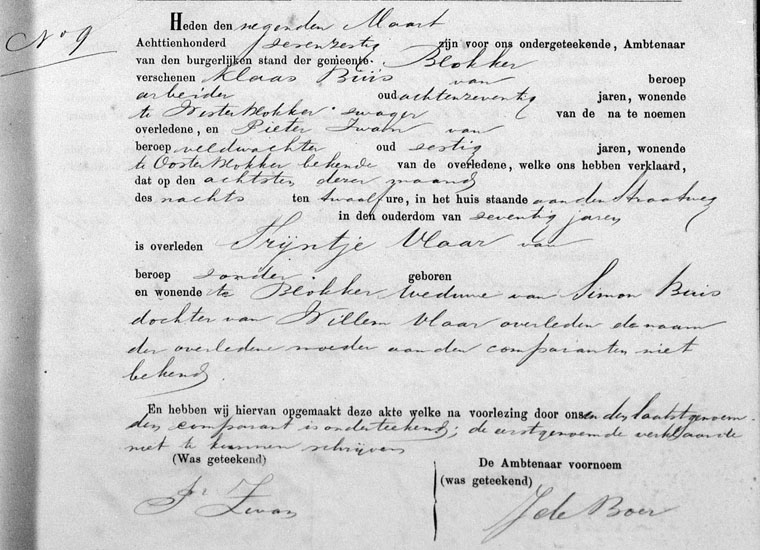 No 9
Heden den negenden Maart
Achttienhonderd sevenzestig zijn voor ons ondergeteekende, Ambtenaar
van den burgerlijken stand der gemeente Blokker
verschenen Klaas Buis van beroep
arbeider oud achtenzeventig jaren, wonende
te Westerblokker swager van de na te noemen
overledene, en Pieter Zwan van
beroep veldwachter oud sestig jaren, wonende
te Oosterblokker bekende van de overledene, welke ons hebben verklaard,
dat op den achtsten dezer maand
des nachts ten twaalf ure, in het huis staande aan den Straatweg
in den ouderdom van seventig jaren
is overleden Trijntje Vlaar van
beroep sonder geboren
en wonende te Blokker Weduwe van Simon Buis
dochter van Willem Vlaar overleden de naam
der overledene moeder aan den comparanten niet
bekend
En hebben wij hiervan opgemaakt deze akte welke na voorlezing door ons en den laatstgenoem-
den comparant is onderteekend; de eerstgenoemde verklaarde
niet te kunnen schrijven
(Was geteekend) De Ambtenaar voornoem
(was geteekend)
Pr Zwan J de Boer